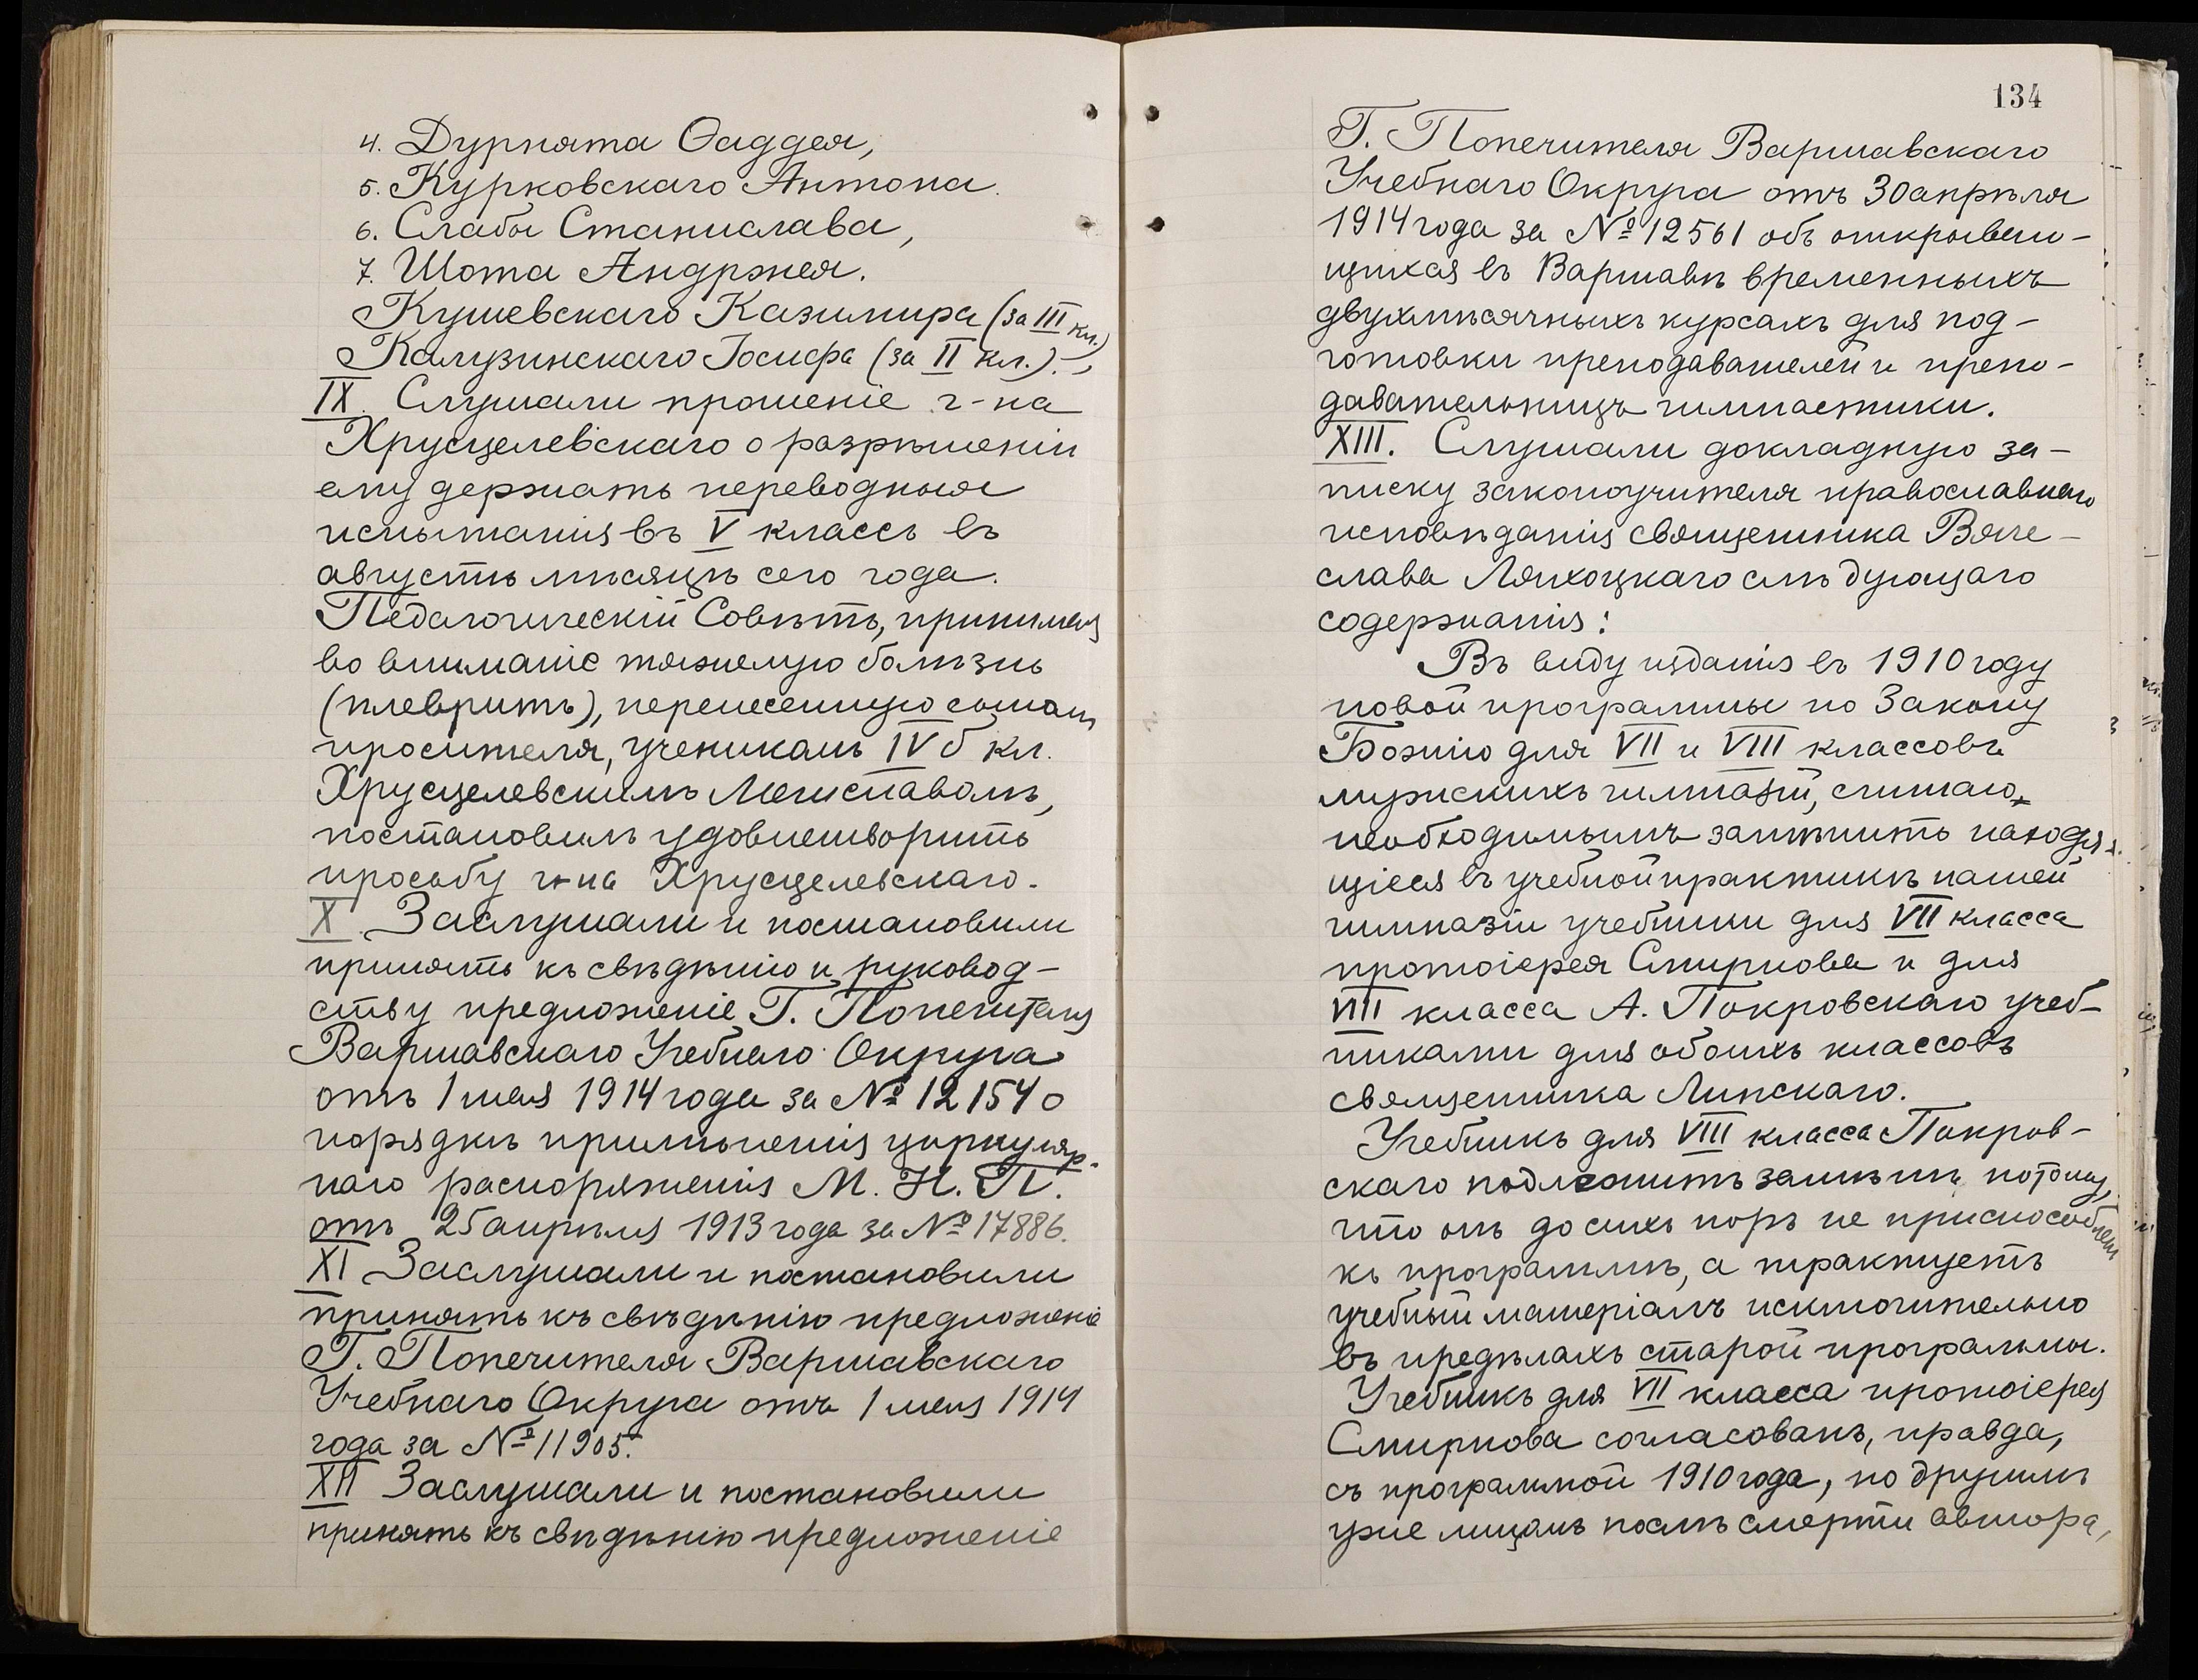 4. Дурията Ѳаддея,
5. Курковскаго Антона.
6. Слабы Станислава,
7. Шота Андржея.
Кушевскаго Казимира (за III кл.)
Калузинскаго Іосифа (за II кл.).
IX. Слушали прошеніе г-на
Хрусцелевскаго о разрѣшеніи
ему держать переводныя
испытанія въ V классъ въ
августѣ мѣсяцѣ сего года.
Педагогическій Совѣтъ, принимая
во вниманіе тяжелую болѣзнь
(плевритъ), перенесенную сыномъ
просителя, ученикомъ IV б кл.
Хрусцелевскимъ Мечиславомъ,
постановилъ удовлетворить
просьбу г-на Хрусцелевскаго.
X Заслушали и постановили
принять къ свѣдѣнію и руковод-
ству предложеніе Г. Попечителя
Варшавскаго Учебнаго Округа
отъ 1 мая 1914 года за № 12154 о
порядкѣ примѣненія циркуляр-
наго распоряженія М. Н. П.
отъ 25 апрѣля 1913 года за № 17886.
XI Заслушали и постановили
принять къ свѣдѣнію предложеніе
Г. Попечителя Варшавскаго
Учебнаго Округа отъ 1 мая 1914
года за № 11905.
XII Заслушали и постановили
принять къ свѣдѣнію предложеніе
134
Г. Попечителя Варшавскаго
Учебнаго Округа отъ 30 апрѣля
1914 года за № 12561 объ открываю-
щихся въ Варшавѣ временныхъ
двухмѣсячныхъ курсахъ для под-
готовки преподавателей и препо-
давательницъ гимнастики.
XIII. Слушали докладную за-
писку законоучителя православнаго
исповѣданія священника Вяче-
слава Ляхоцкаго слѣдующаго
содержанія:
Въ виду изданія въ 1910 году
новой программы по Закону
Божію для VII и VIII классовъ
мужскихъ гимназій, считаю
необходимымъ замѣнить находя-
щіеся въ учебной практикѣ нашей
гимназіи учебники для VII класса
протоіерея Смирнова и для
VIII класса А. Покровскаго учеб-
никами для обоихъ классовъ
священника Липскаго.
Учебникъ для VIII класса Покров-
скаго подлежитъ замѣнѣ потому,
что онъ до сихъ поръ не приспособленъ
къ программѣ, а трактуетъ
учебный матеріалъ исключительно
въ предѣлахъ старой программы.
Учебникъ для VII класса протоіерея
Смирнова согласованъ, правда,
съ программой 1910 года, но другимъ
уже лицомъ послѣ смерти автора,